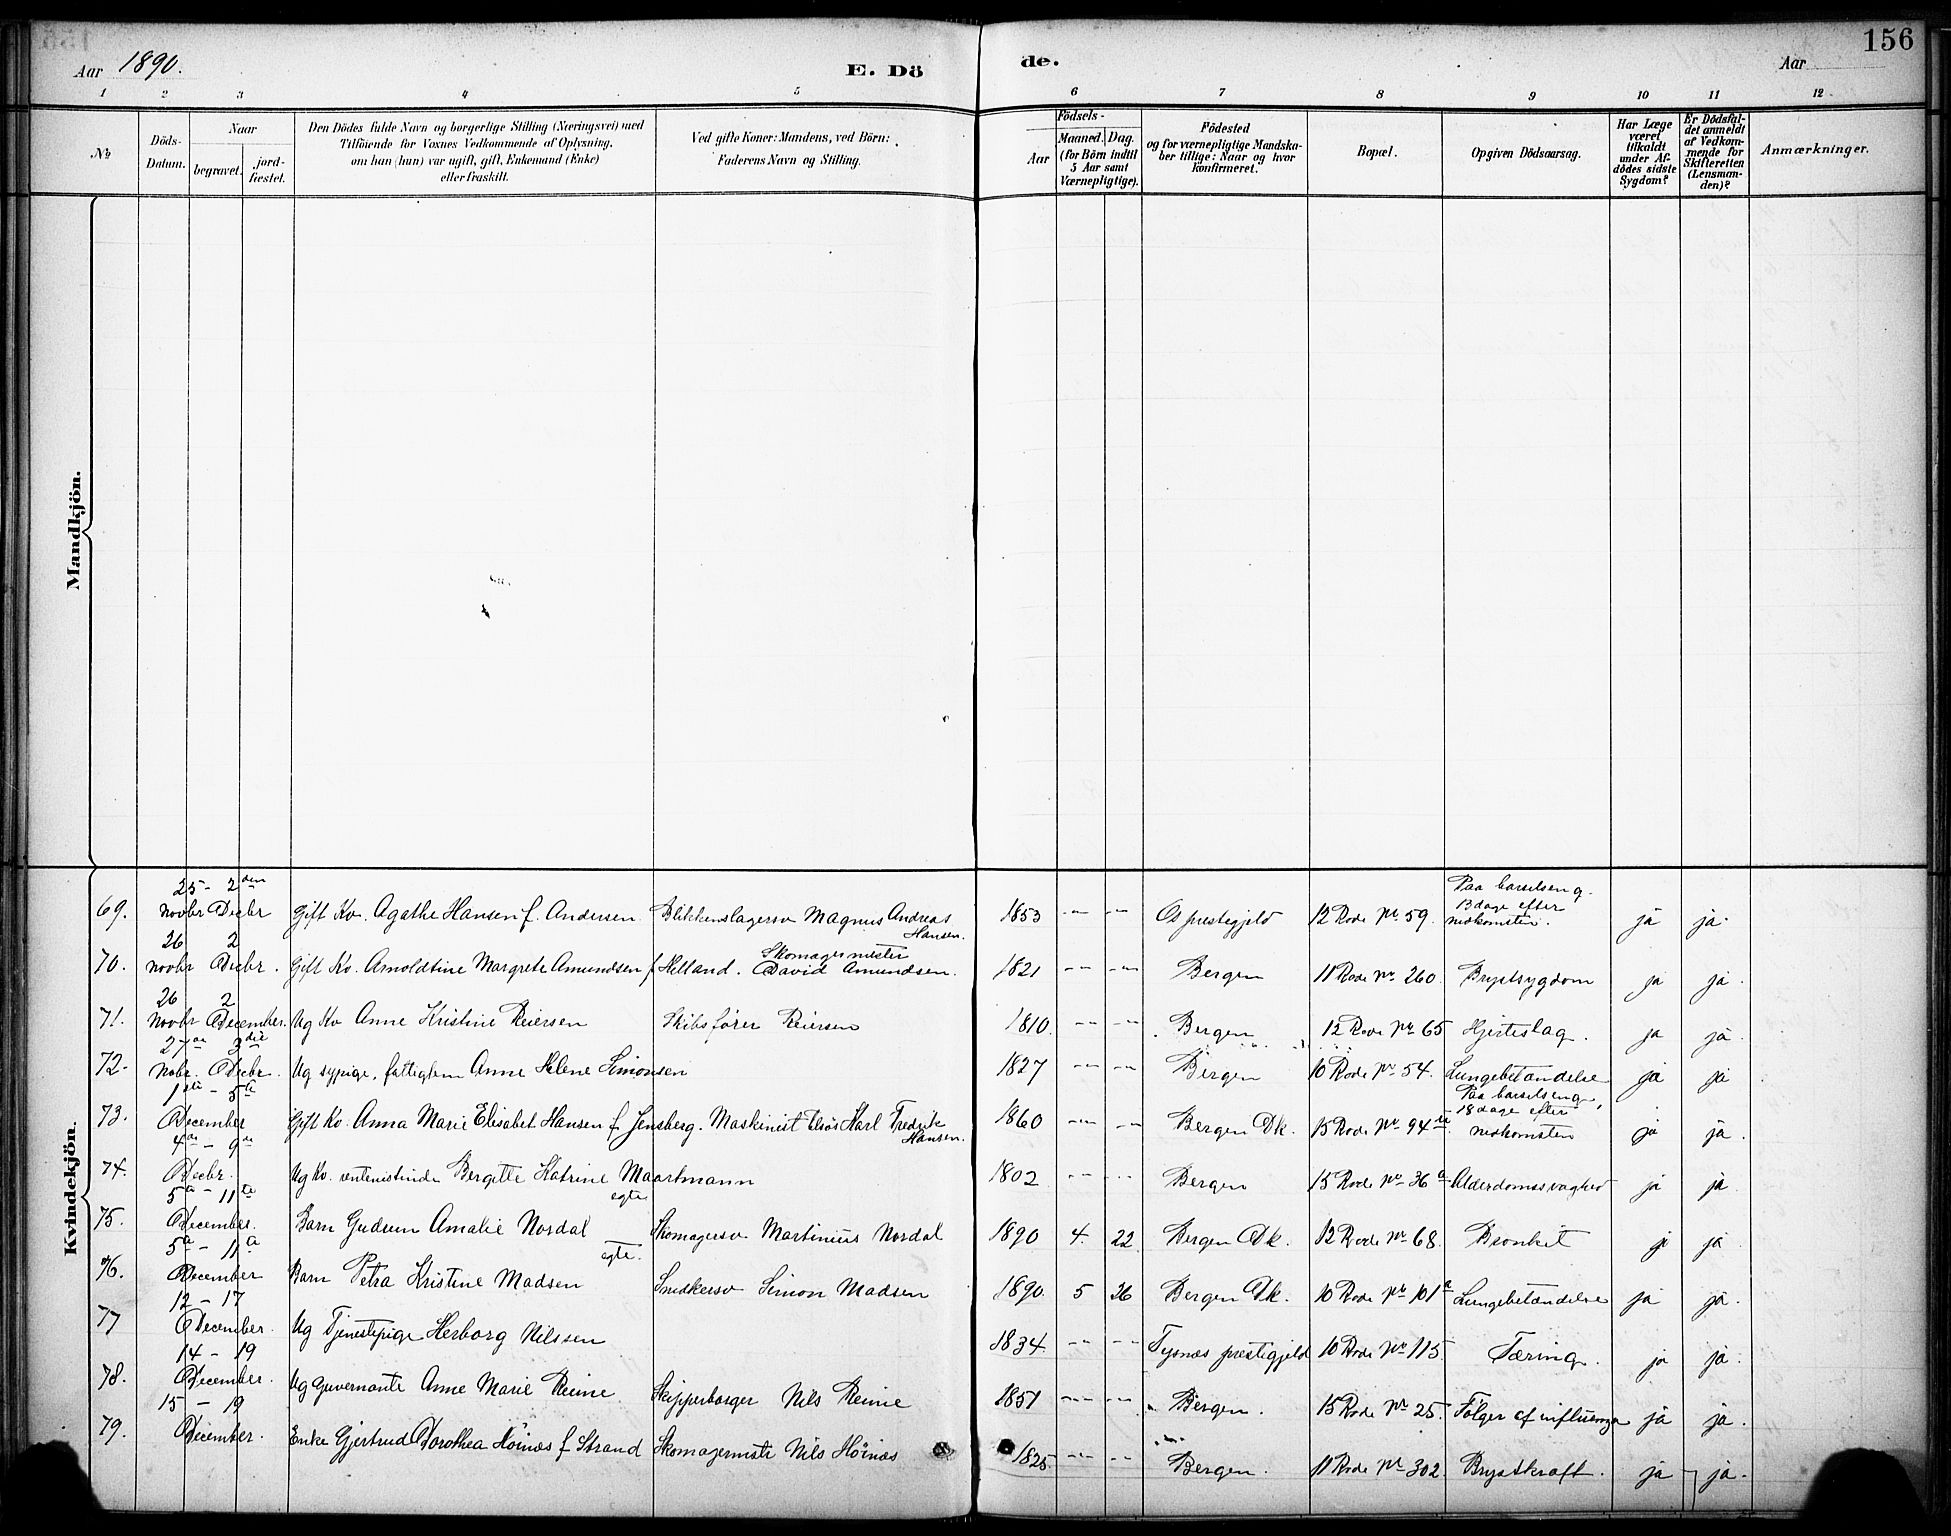 156
Aar 1890.
E. Dö de.
Aar
1 2 3 4 5 6 7 8 9 10 11 12
No
Döds-Datum.
Naar
begravet.
jord-fæstet.
Den Dödes fulde Navn og borgerlige Stilling (Næringsvei) med
Tilföiende for Voxnes Vedkommende af Oplysning,
om han (hun) var ugift, gift, Enkemand (Enke)
eller fraskilt.
Ved gifte Koner: Mandens, ved Börn:
Faderens Navn og Stilling.
Födsels-
Aar
Maaned. Dag.
(for Börn indtil
5 Aar samt
Værnepligtige).
Födested
og for værnepligtige Mandska-
ber tillige: Naar og hvor
konfirmeret.
Bopæl.
Opgiven Dödsaarsag.
Har Læge
været
tilkaldt
under Af-
dödes sidste
Sygdom?
Er Dödsfal-
det anmeldt
af Vedkom-
mende for
Skifteretten
(Lensman-
den)?
Anmærkninger.
Mandkjön.
Kvindekjön.
69. 25 - 2den Novbr Decbr Gift Kv. Agathe Hansen f. Andersen Blikkenslagersv Magnus Andreas Hansen. 1853 Os prestegjeld 12 Rode No 59. Paa barselseng. 13 dage efter nedkomsten. ja ja
70. 26 2 Novbr Decbr. Gift Kv. Arnoldtine Margrete Amundsen f Helland. Skomagermester David Amundsen. 1821 Bergen 11 Rode No 260 Brystsygdom ja ja.
71. 26 2 Novbr December. Ug Kv Anne Kristine Reiersen Skibsfører Reiersen 1810. Bergen 12 Rode No 65 Hjerteslag. ja ja.
72. 27de 3die Nobr. Decbr. Ug sypige, fattiglem Anne Helene Simonsen 1827 Bergen 10 Rode No 54. Lungebetændelse ja ja
73. 1ste - 5te December Gift Kv. Anna Marie Elisabet Hansen f Jensberg. Maskinist Karl Fredrik Hansen. 1860 Bergen Dk. 15 Rode No 94 Paa barselseng, 18 dage efter nedkomsten ja ja.
74. 4de - 9de Decbr. Ug Kv. rentenistinde Bergitte Katrine Maartmann 1802 Bergen 15 Rode No 36a Alderdomssvaghed ja ja
75. 5te - 11te December. Barn Gudrun Amalie Nordal egte Skomagersv Martinius Nordal 1890 4. 22 Bergen Dk. 12 Rode No 68. Bronkit ja ja
76. 5te - 11te December Barn Petra Kristine Madsen egte. Snedkersv Simon Madsen 1890. 5 26 Bergen Dk. 10 Rode No 101a Lungebetændelse ja ja.
77 12 - 17 December. Ug Tjenestepige Herborg Nilssen 1834. Tysnæs prestegjeld 10 Rode No 115 Tæring. ja ja.
78. 14 - 19 December. Ug Guvernante Anne Marie Reime Skipperborger Nils Reime 1851 Bergen. 15 Rode No 25. Følger af influenza ja ja.
79. 15 - 19 December. Enke Gjertrud Dorothea Höinæs f Strand Skomagermester Nils Höinæs 1825. Bergen. 11 Rode No 302. Brystkræft. ja ja.